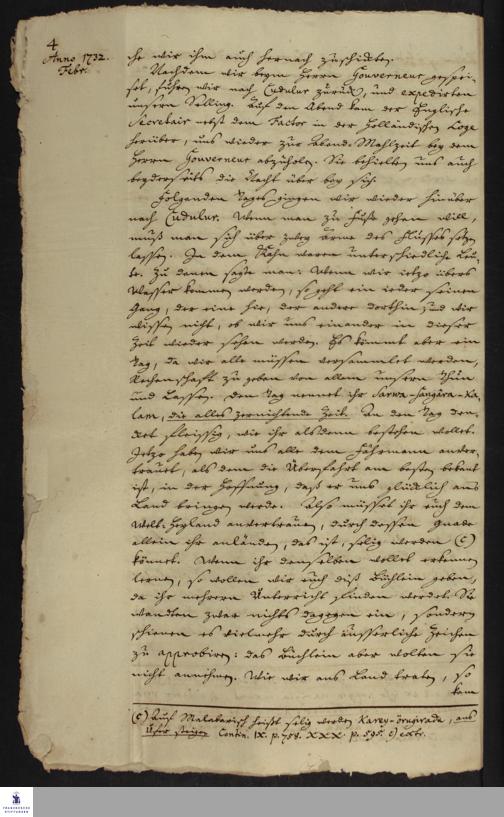 4
Anno 1732.
Febr.
che wir ihm auch hernach zuschickten.
Nachdem wir beym Herrn Gouverneur gespei-
set, fuhren wir nach Cudulur zurück, und expedirten
unsern Selling. Auf den Abend kam der Englische
Secretair nebst dem Factor in der Holländischen Loge
herüber, uns wieder zur Abend-Mahlzeit bey dem
Herrn Gouverneur abzuholen. Sie behielten uns auch
beyderseits die Nacht über bey sich.
Folgenden Tages gingen wir wieder hinüber
nach Cudulur. Wenn man zu Fuße gehen will,
muß man sich über zwey Arme des Flusses setzen
lassen. In dem Kahn waren unterschiedliche Leu-
te. Zu denen sagte man: Wenn wir ietzo übers
Wasser kommen werden, so geht ein ieder seinen
Gang, der eine hie, der andere dorthin, und wir
wissen nicht, ob wir uns einander in dieser
Zeit wieder sehen werden. Es kömmt aber ein
Tag, da wir alle müssen versammlet werden,
Rechenschafft zu geben von allem unserm Thun
und Lassen. Den Tag nennet ihr Sarwa-sangára-ka-
lam, die alles zernichtende Zeit. An den Tag den-
cket fleissig, wie ihr alsdenn bestehen wollet.
Jetzo haben wir uns alle dem Fährmann anver-
trauet, als dem die Überfahrt am besten bekant
ist, in der Hoffnung, daß er uns glücklich ans
Land bringen werde. Also müsset ihr euch dem
Welt-Heyland anvertrauen, durch dessen Gnade
allein ihr anländen, das ist, selig werden (c)
könnet. Wenn ihr denselben wollet erkennen
lernen, so wollen wir euch diß Büchlein geben,
da ihr mehrern Unterricht finden werdet. Sie
wandten zwar nichts dagegen ein, sondern
schienen es vielmehr durch äusserliche Zeichen
zu approbiren: das Büchlein aber wolten sie
nicht annehmen. Wie wir ans Land traten, so
kam
(c) Auf Malabarisch heißt selig werden Karey-örugiradu, ans
Ufer steigen Contin. IX. p. 708. XXX. p. 595. c) extr.
FRANCKESCHE
STIFTUNGEN